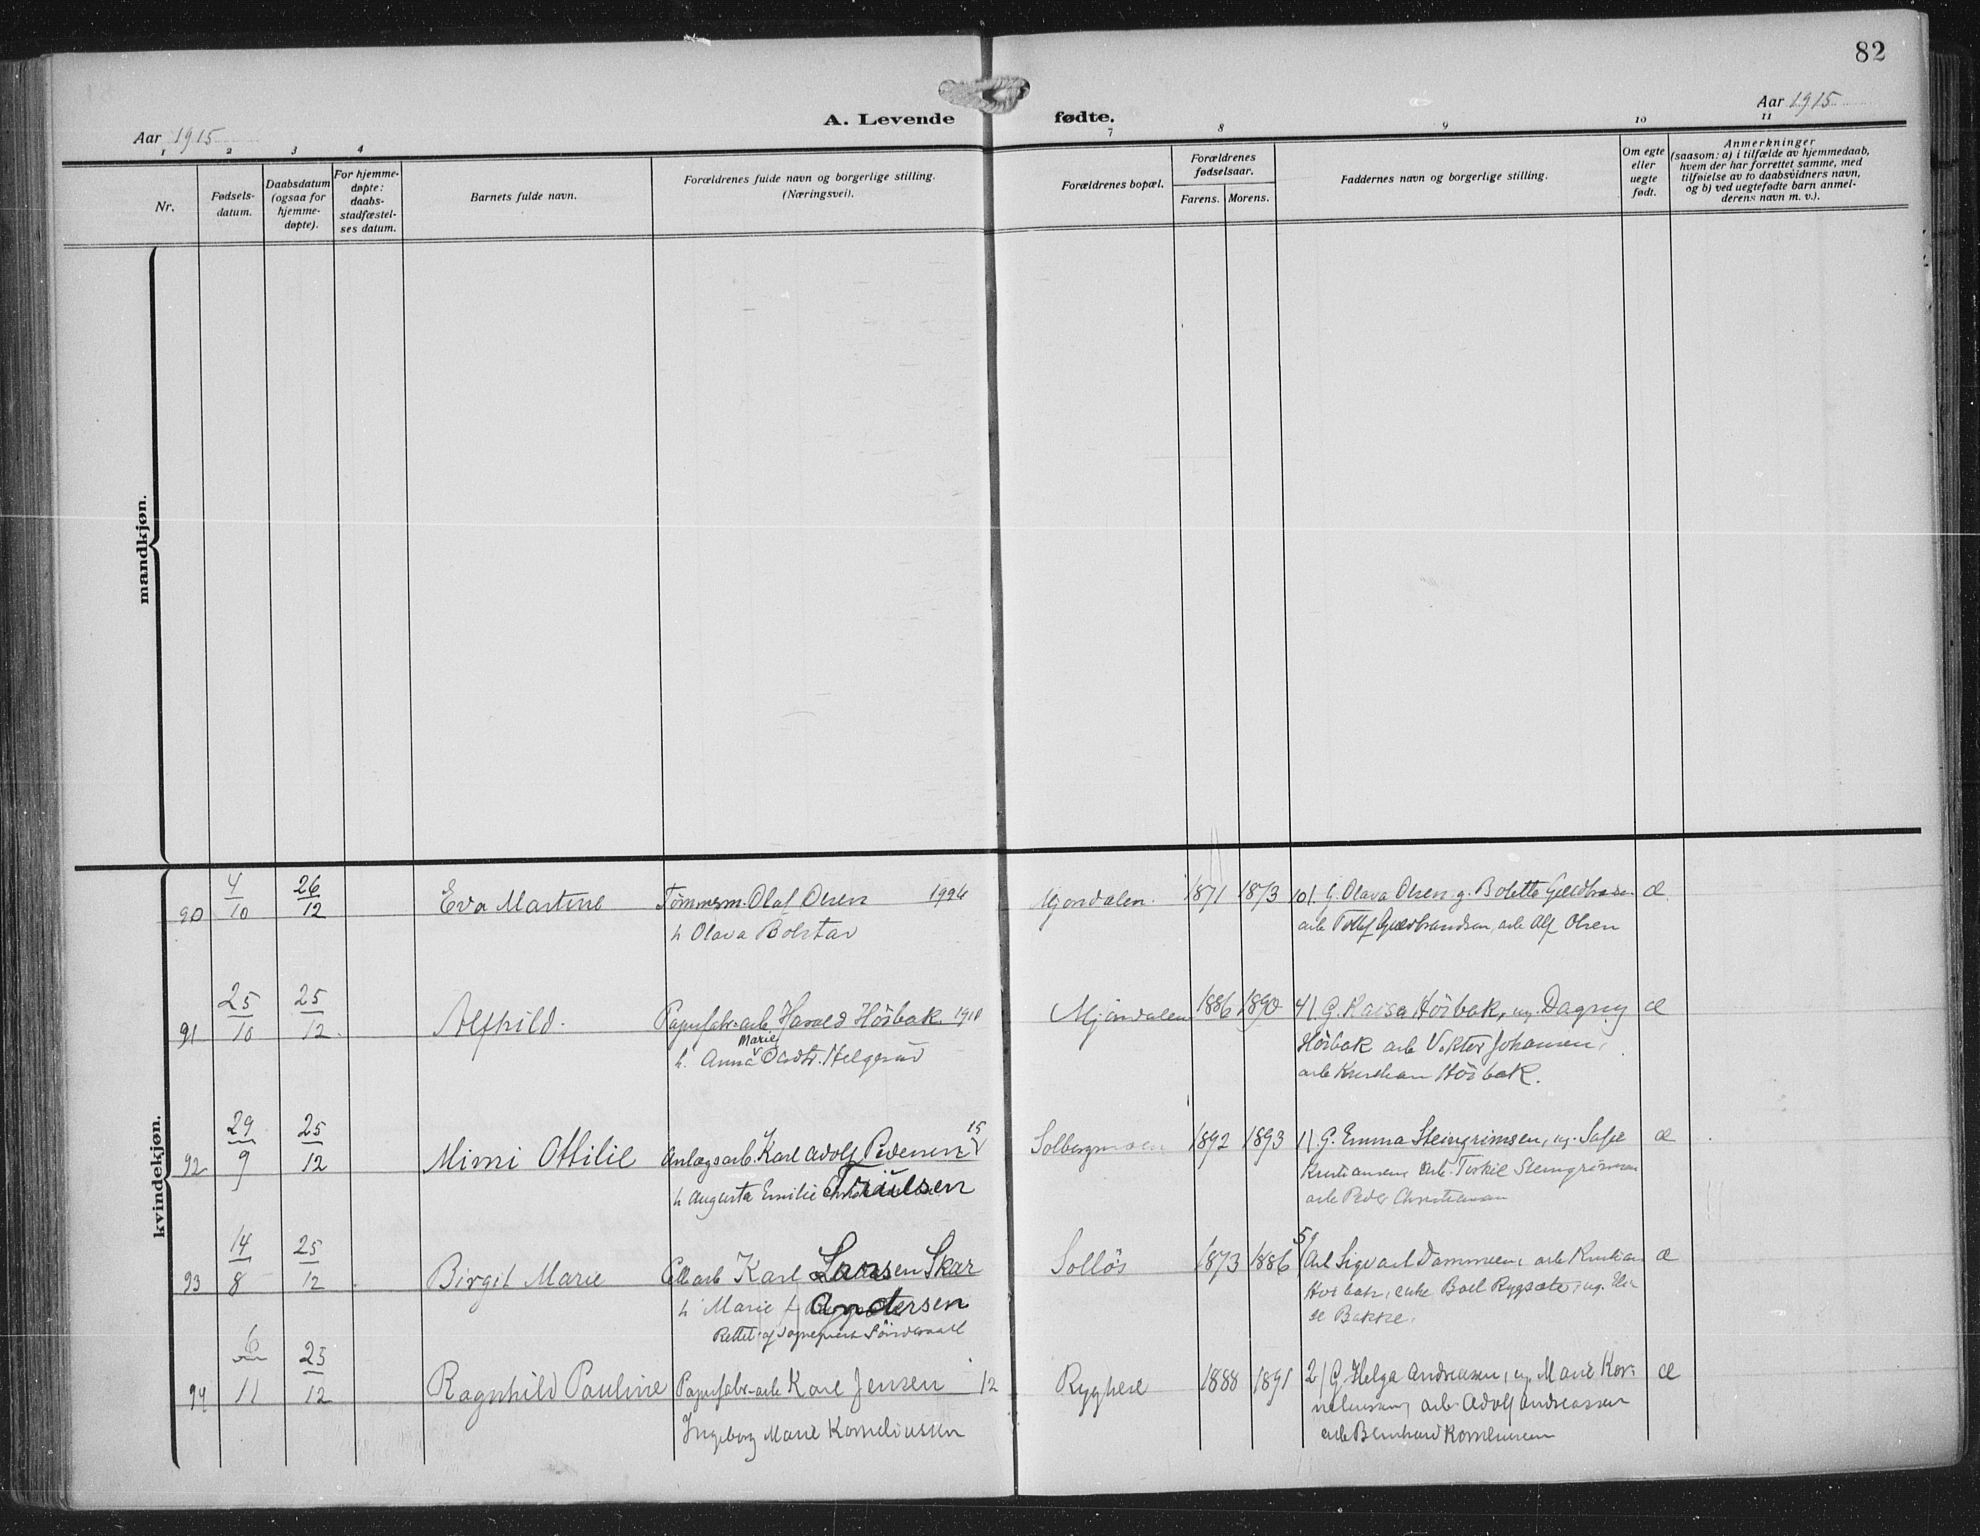 82
Aar 1915
A. Levende fødte.
Aar 1915
1 2 3 4 7 8 9 10 11
Nr.
Fødsels-
datum.
Daabsdatum
(ogsaa for
hjemme-
døpte).
For hjemme-
døpte:
daabs-
stadfæstel-
ses datum.
Barnets fulde navn.
Forældrenes fulde navn og borgerlige stilling.
(Næringsvei).
Forældrenes bopæl.
Forældrenes
fødselsaar.
Farens. Morens.
Faddernes navn og borgerlige stilling.
Om egte
eller
uegte
født.
Anmerkninger
(saasom: a) i tilfælde av hjemmedaab,
hvem der har forrettet samme, med
tilføielse av to daabsvidners navn,
og b) ved uegtefødte barn anmel-
derens navn m. v.).
mandkjøn.
kvindekjøn.
90 4/10 26/12 Eva Martine Tømmerm. Olaf Olsen Mjøndalen. 1871 1873 10/. G. Olava Olsen, g. Bolette æ.
h Olava Bolstad arb Alf Olsen
91 25/10 25/12 Alfhild. Papirfabr.arb. Harald Hörbak. 1910 Mjøndalen 1886 1890 4/ G. Kaisa Hörbak, ug. Dagny æ
Marie
h. Anna Helgerud Hörbak arb Viktor Johansen,
arb Kristian Hörbak.
92 29/9 25/12 Mimi Ottilie Anlægsarb. Karl Adolf Pedersen 15 Solbergmoen 1892 1893 1/ G. Emma Steingrimsen, ug. æ
h Augusta Emilie Truelsen Kristiansen, arb. Steingrimsen
arb Peder Christiansen
93 14/8 25/12 Birgit Marie Cellarb Karl Larsen Skar Solløs 1873 1886 5/ Arb Sigvart arb Kristian æ
h Marie Andersen Hörbak, enke Boel
Rettet Bakke.
94 6/11 25/12 Ragnhild Pauline Papirfabr-arb Karl Jensen 12 1888 1891 2/ G. Helga Andreassen, ug. Marie Kor- æ
Ingeborg Marie Korneliussen neliussen, arb Adolf Andreassen
arb Bernhard Korneliussen